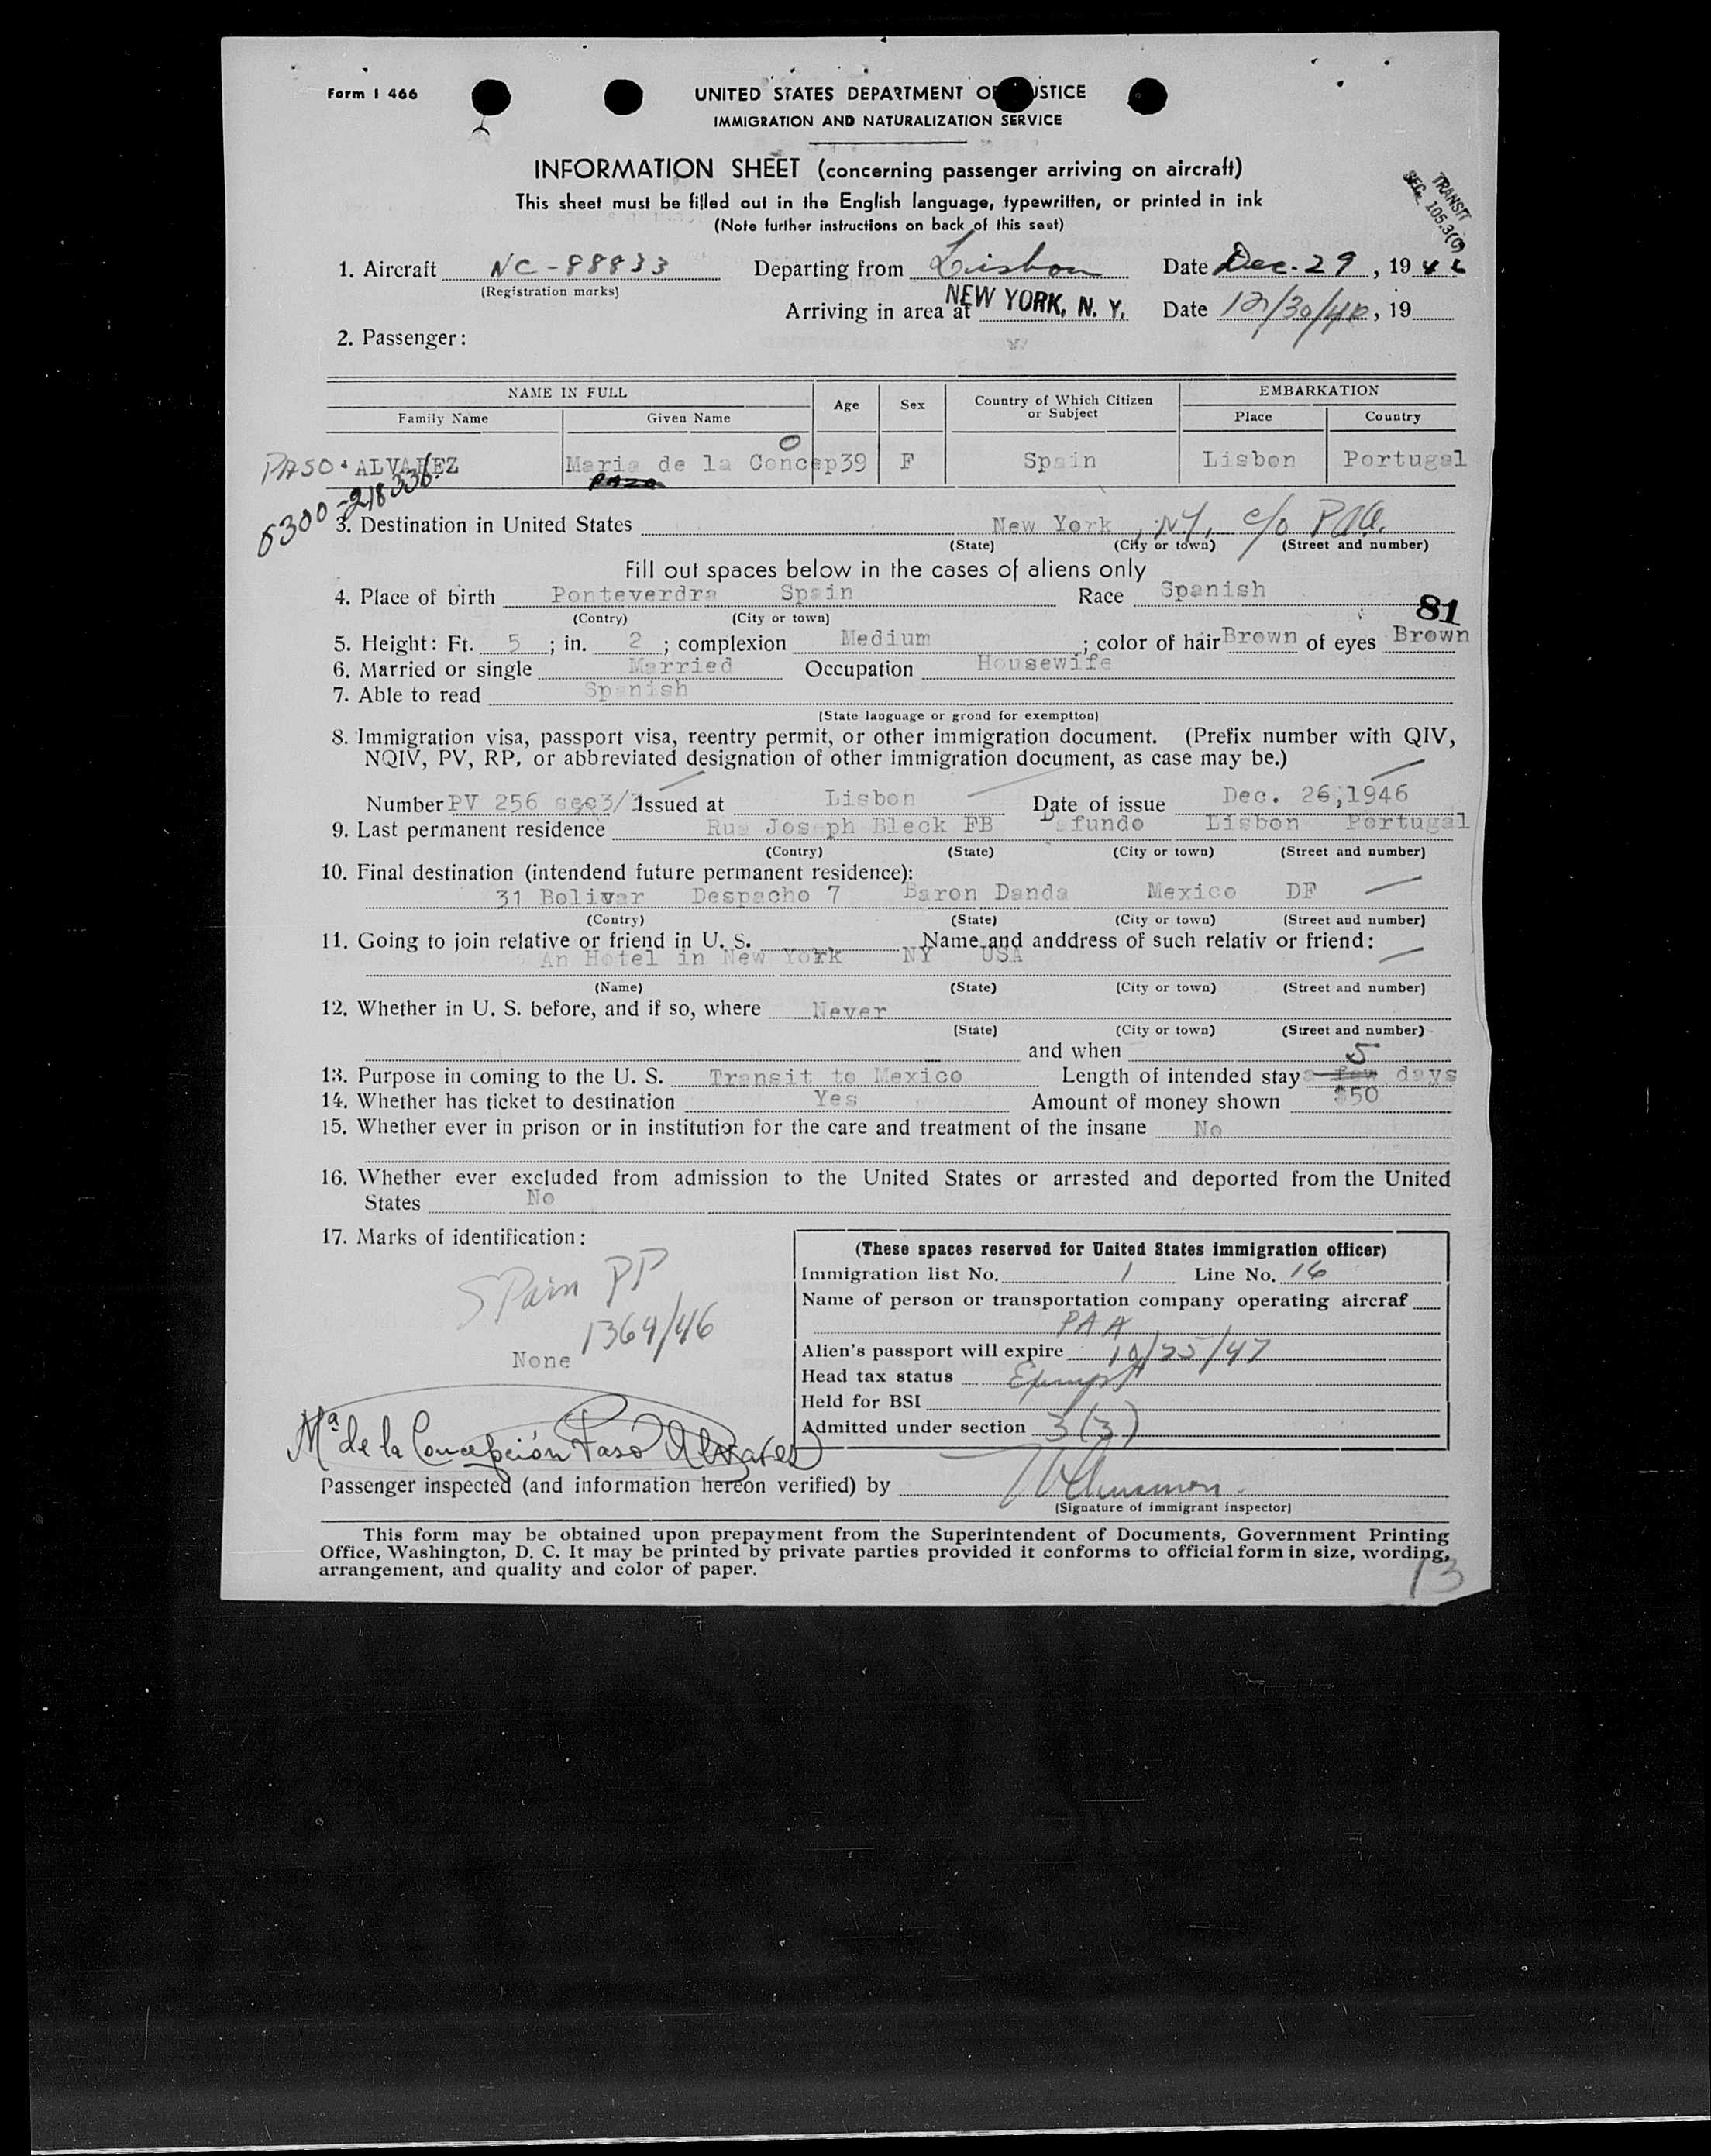 Form I 466
UNITED STATES DEPARTMENT OF JUSTICE
IMMIGRATION AND NATURALIZATION SERVICE
INFORMATION SHEET (concerning passenger arriving on aircraft)
This sheet must be filled out in the English language, typewritten, or printed in ink
(Note further instructions on back of this seet)
TRANSIT
SEC. 105.3(C)
1. Aircraft NC-88833 Departing from Lisbon Date Dec. 29, 1946
(Registration marks)
Arriving in area at NEW YORK, N. Y. Date 12/30/46, 19
2. Passenger:
NAME IN FULL Age Sex Country of Which Citizen or Subject EMBARKATION
Family Name Given Name Place Country
PASO ALVAREZ Maria de la Concep 39 F Spain Lisbon Portugal
5300-218336
3. Destination in United States New York, NY, c/o PAA.
(State) (City or town) (Street and number)
Fill out spaces below in the cases of aliens only
4. Place of birth Ponteverdra Spain Race Spanish
81
(Contry) (City or town)
5. Height: Ft. 5; in. 2; complexion Medium; color of hair Brown of eyes Brown
6. Married or single Married Occupation Housewife
7. Able to read Spanish
(State language or grond for exemption)
8. Immigration visa, passport visa, reentry permit, or other immigration document. (Prefix number with QIV,
NQIV, PV, RP, or abbreviated designation of other immigration document, as case may be.)
Number PV 256 sec3/3 Issued at Lisbon Date of issue Dec. 26,1946
9. Last permanent residence Rua Joseph Bleck FB Dafundo Lisbon Portugal
(Contry) (State) (City or town) (Street and number)
10. Final destination (intendend future permanent residence):
31 Bolivar Despacho 7 Baron Danda Mexico DF
(Contry) (State) (City or town) (Street and number)
11. Going to join relative or friend in U. S. Name and anddress of such relativ or friend:
An Hotel in New York NY USA
(Name) (State) (City or town) (Street and number)
12. Whether in U. S. before, and if so, where Never
(State) (City or town) (Street and number)
and when
13. Purpose in coming to the U. S. Transit to Mexico Length of intended stay a few 5 days
14. Whether has ticket to destination Yes Amount of money shown $50
15. Whether ever in prison or in institution for the care and treatment of the insane No
16. Whether ever excluded from admission to the United States or arrested and deported from the United
States No
17. Marks of identification:
Spain PP
1364/46
None
(These spaces reserved for United States immigration officer)
Immigration list No. 1 Line No. 16
Name of person or transportation company operating aircraf
PAA
Alien's passport will expire 10/25/47
Head tax status Exempt
Held for BSI
Admitted under section 3(3)
Mª de la Concepción Paso Alvarez
Passenger inspected (and information hereon verified) by
(Signature of immigrant inspector)
This form may be obtained upon prepayment from the Superintendent of Documents, Government Printing
Office, Washington, D. C. It may be printed by private parties provided it conforms to official form in size, wording,
arrangement, and quality and color of paper.
13